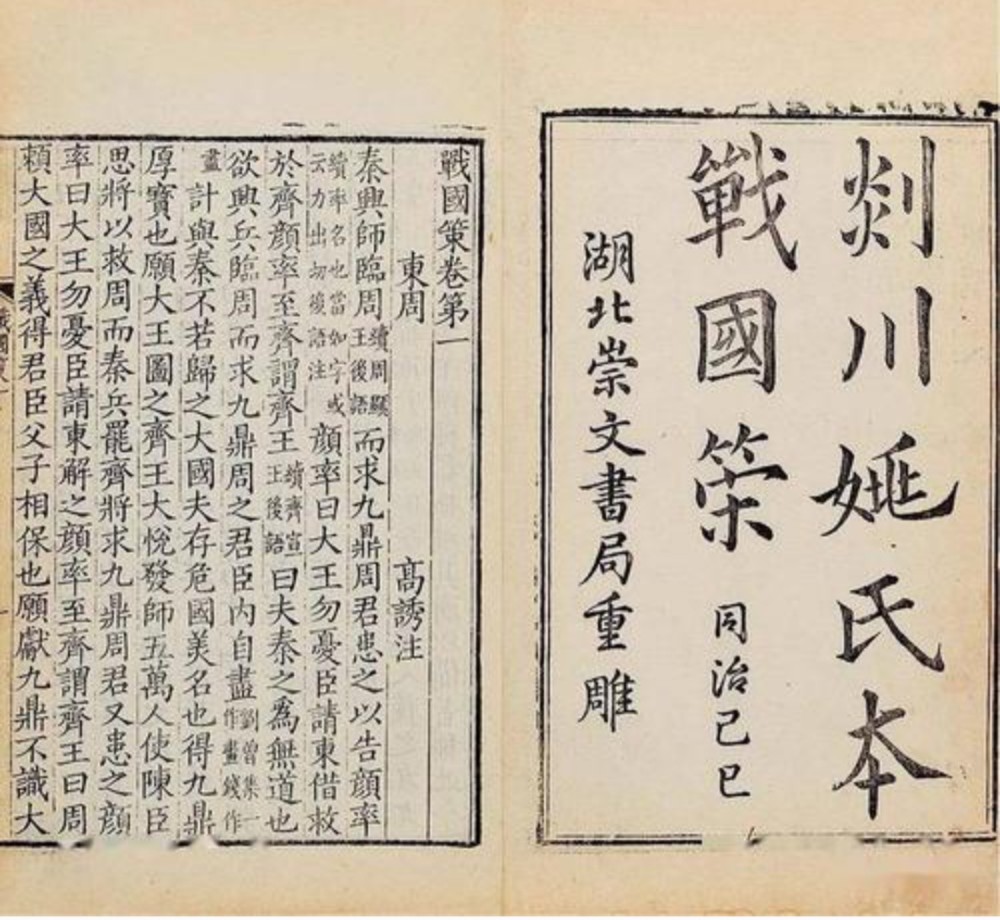 剡川姚氏本
戰國策 同治己巳
湖北崇文書局重雕
戰國策卷第一
東周 高誘注
秦興師臨周續周顯王後語而求九鼎周君患之以告顏率
續率名也當如字或云力出切後語注顏率曰大王勿憂臣請東借救
於齊顏率至齊謂齊王續齊宣王後語曰夫秦之爲無道也
欲興兵臨周而求九鼎周之君臣內自盡劉曾集一作畫錢作
盡計與秦不若歸之大國夫存危國美名也得九鼎
厚寶也願大王圖之齊王大悅發師五萬人使陳臣
思將以救周而秦兵罷齊將求九鼎周君又患之顏
率曰大王勿憂臣請東解之顏率至齊謂齊王曰周
賴大國之義得君臣父子相保也願獻九鼎不識大